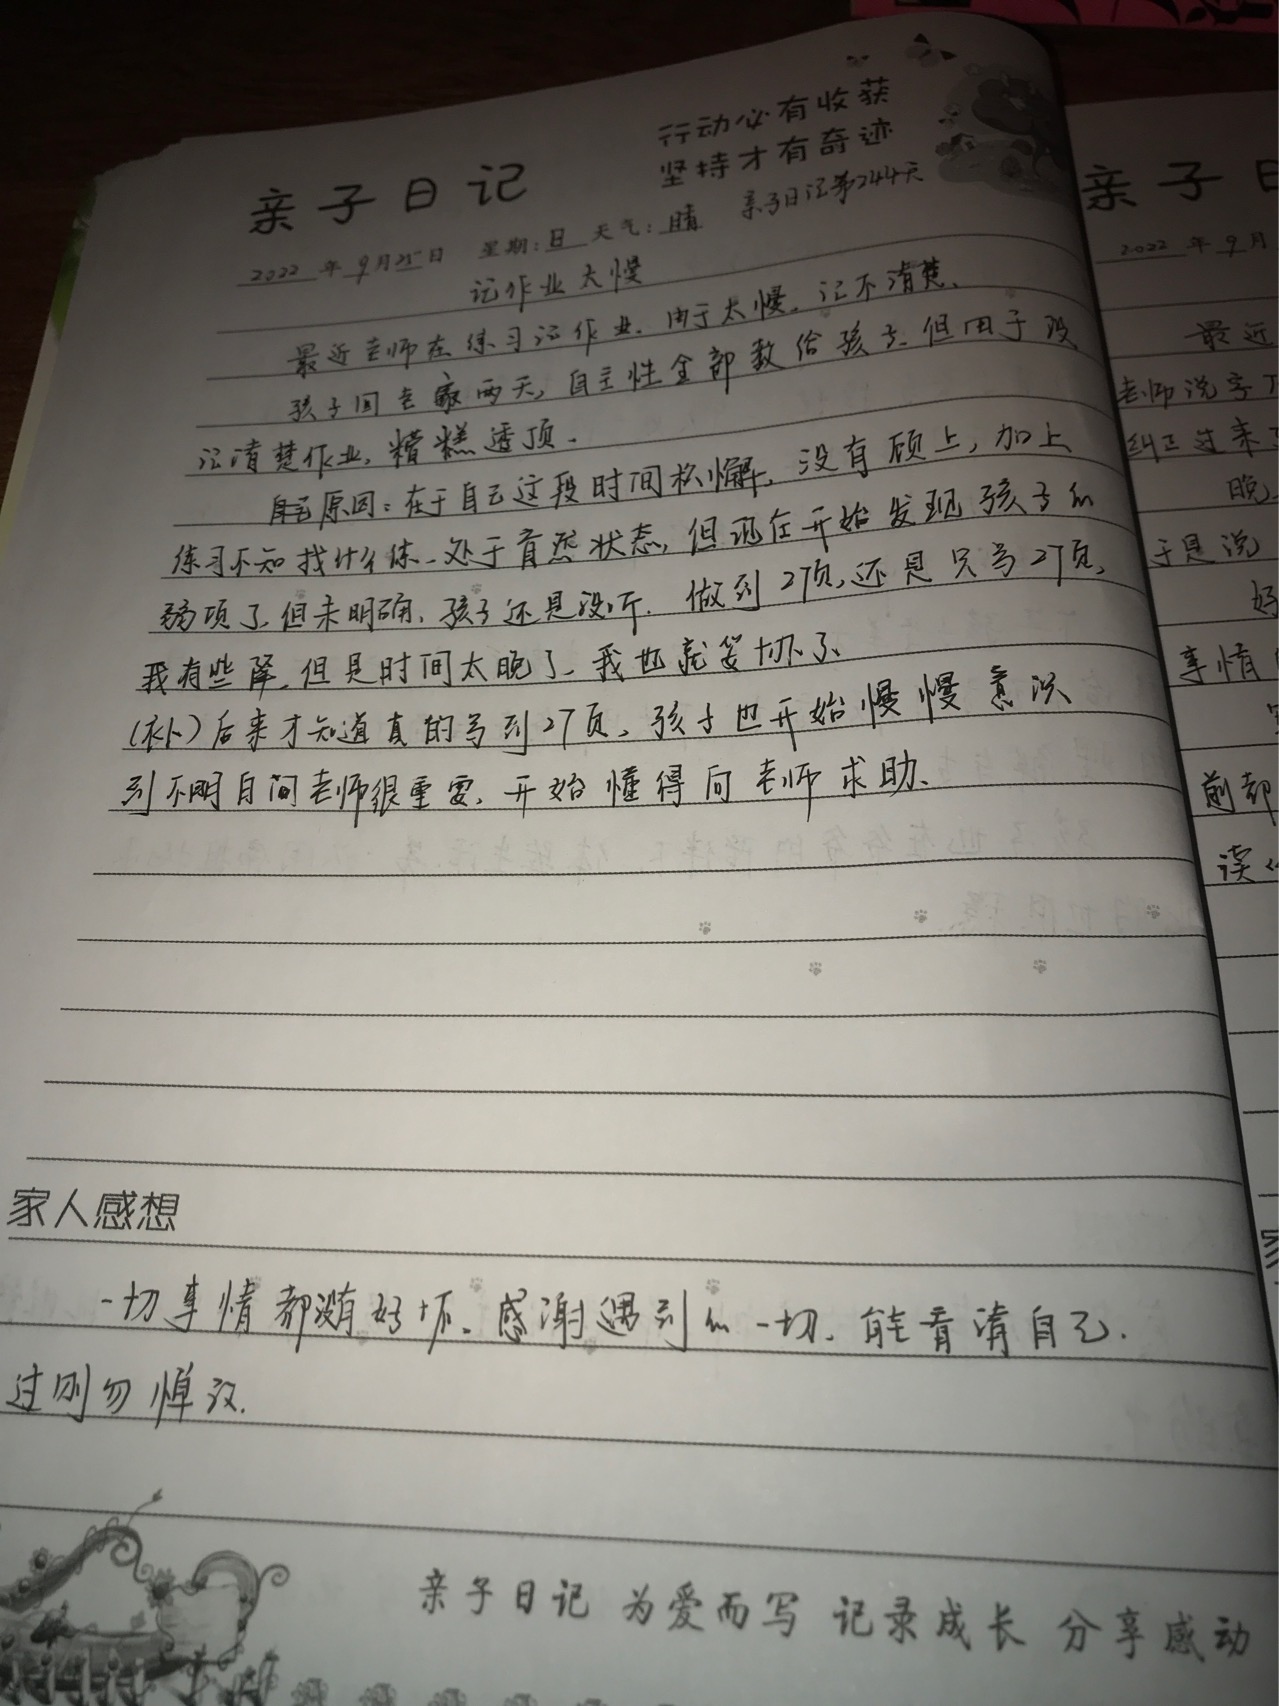 行动必有收获
坚持才有奇迹
亲子日记
亲子日记第244天
2022年9月25日 星期:日 天气:晴
记作业太慢
最近老师在练习记作业,由于太慢,记不清楚、
孩子回去家两天,自主性全部教给孩子,但由于没
记清楚作业,糟糕透顶.
自己原因:在于自己这段时间松懈,没有顾上,加上
练习不知找什么练、处于盲然状态,但现在开始发现孩子的
弱项了,但未明确,孩子还是没听.做到27页,还是只写27页,
我有些,但是时间太晚了、我也就妥协了、
(补)后来才知道真的写到27页、孩子也开始慢慢意识
到不明白问老师很重要,开始懂得向老师求助、
家人感想
一切事情都没有好坏、感谢遇到的一切.能看清自己.
过则勿惮改.
亲子日记 为爱而写 记录成长 分享感动
亲子日
2022年9月
最近
老师说字
纠正过来
晚上
于是说
好
事情
前都
读